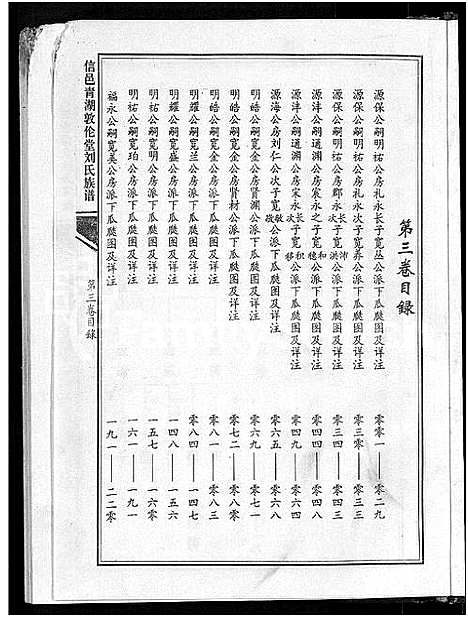 第三卷目録
源保公嗣明祐公房礼永长子宽丛公派下瓜瓞图及详注 零零一——零二九
源保公嗣明祐公房礼永次子宽养公派下瓜瓞图及详注 零三零——零三三
源保公嗣明祐公房郿永长次子宽沛洪公派下瓜瓞图及详注 零三四——零四三
源沣公嗣道渊公房宸永之子宽和穗公派下瓜瓞图及详注 零四四——零四八
源沣公嗣道渊公房宋永长次子宽积移公派下瓜瓞图及详注 零四九——零六四
源海公房刘仁公次子宽敏敬公派下瓜瓞图及详注 零六五——零六九
明皓公嗣宽金公房贤渊公派下瓜瓞图及详注 零六九——零七一
明皓公嗣宽金公房贤材公派下瓜瓞图及详注 零七二——零八零
明皓公嗣宽金公房派下瓜瓞图及详注 零八一——零八三
明耀公嗣宽兰公房派下瓜瓞图及详注 零八四——一四七
明耀公嗣宽盛公房派下瓜瓞图及详注 一四八——一五六
明祐公嗣宽明公房派下瓜瓞图及详注 一五七——一六零
明祐公嗣宽珀公房派下瓜瓞图及详注 一六一——一九一
福永公嗣宽美公房派下瓜瓞图及详注 一九一——二二零
信邑青湖敦伦堂刘氏族谱
第三卷目録